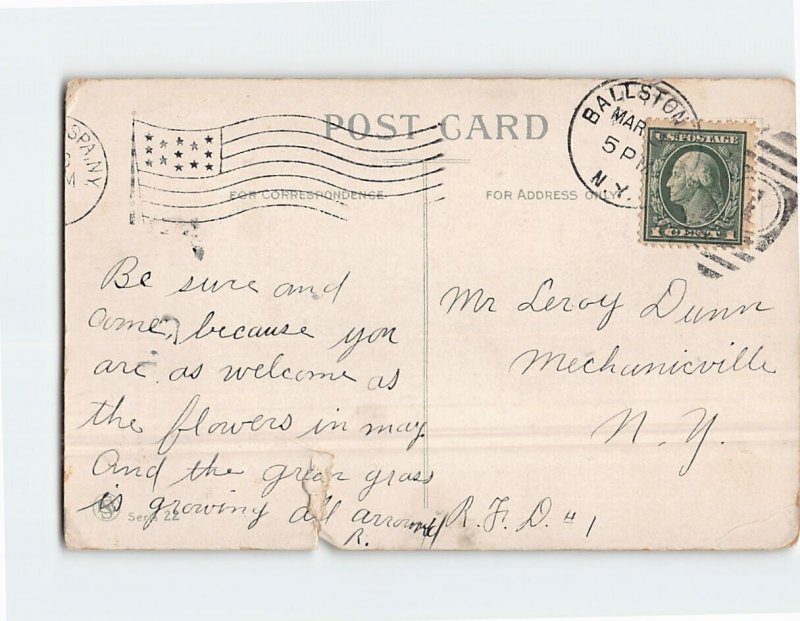 POST CARD
FOR CORRESPONDENCE
FOR ADDRESS ONLY
SPA, NY
BALLSTON
MAR
5 P
N.Y.
U.S. POSTAGE
1 CENT 1
Be sure and
come, because you
are as welcome as
the flowers in may
And the green grass
is growing all arround
R.
Mr Leroy Dunn
Mechanicville
N.Y.
R.F.D. #1
22